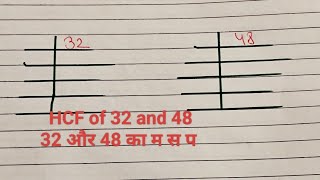 32
48
HCF of 32 and 48
32 और 48 का म स प